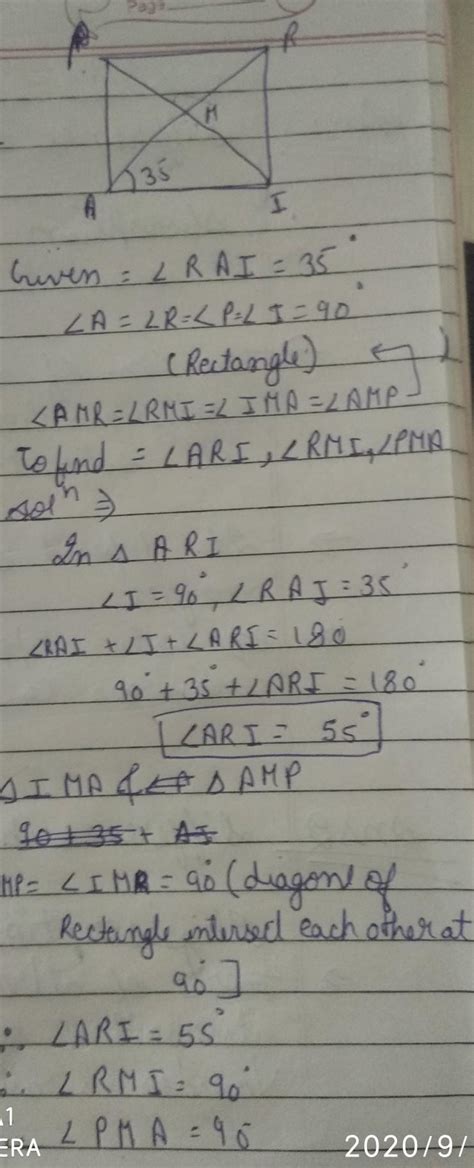 Page
P R
M
35
A I
Given = ∠RAI = 35°
∠A = ∠R = ∠P = ∠I = 90°
(Rectangle)
∠AMR = ∠RMI = ∠IMA = ∠AMP
To find = ∠ARI, ∠RMI, ∠PMA
solⁿ ⇒
In △ ARI
∠I = 90°, ∠RAI = 35°
∠RAI + ∠I + ∠ARI = 180
90° + 35° + ∠ARI = 180°
∠ARI = 55°
△ IMA & △ AMP
90 + 35 + AI
MP = ∠IMR = 90° (diagonl of
Rectangle intersect each other at
90°]
∴ ∠ARI = 55°
∴ ∠RMI = 90°
∠PMA = 90
1
ERA 2020/9/